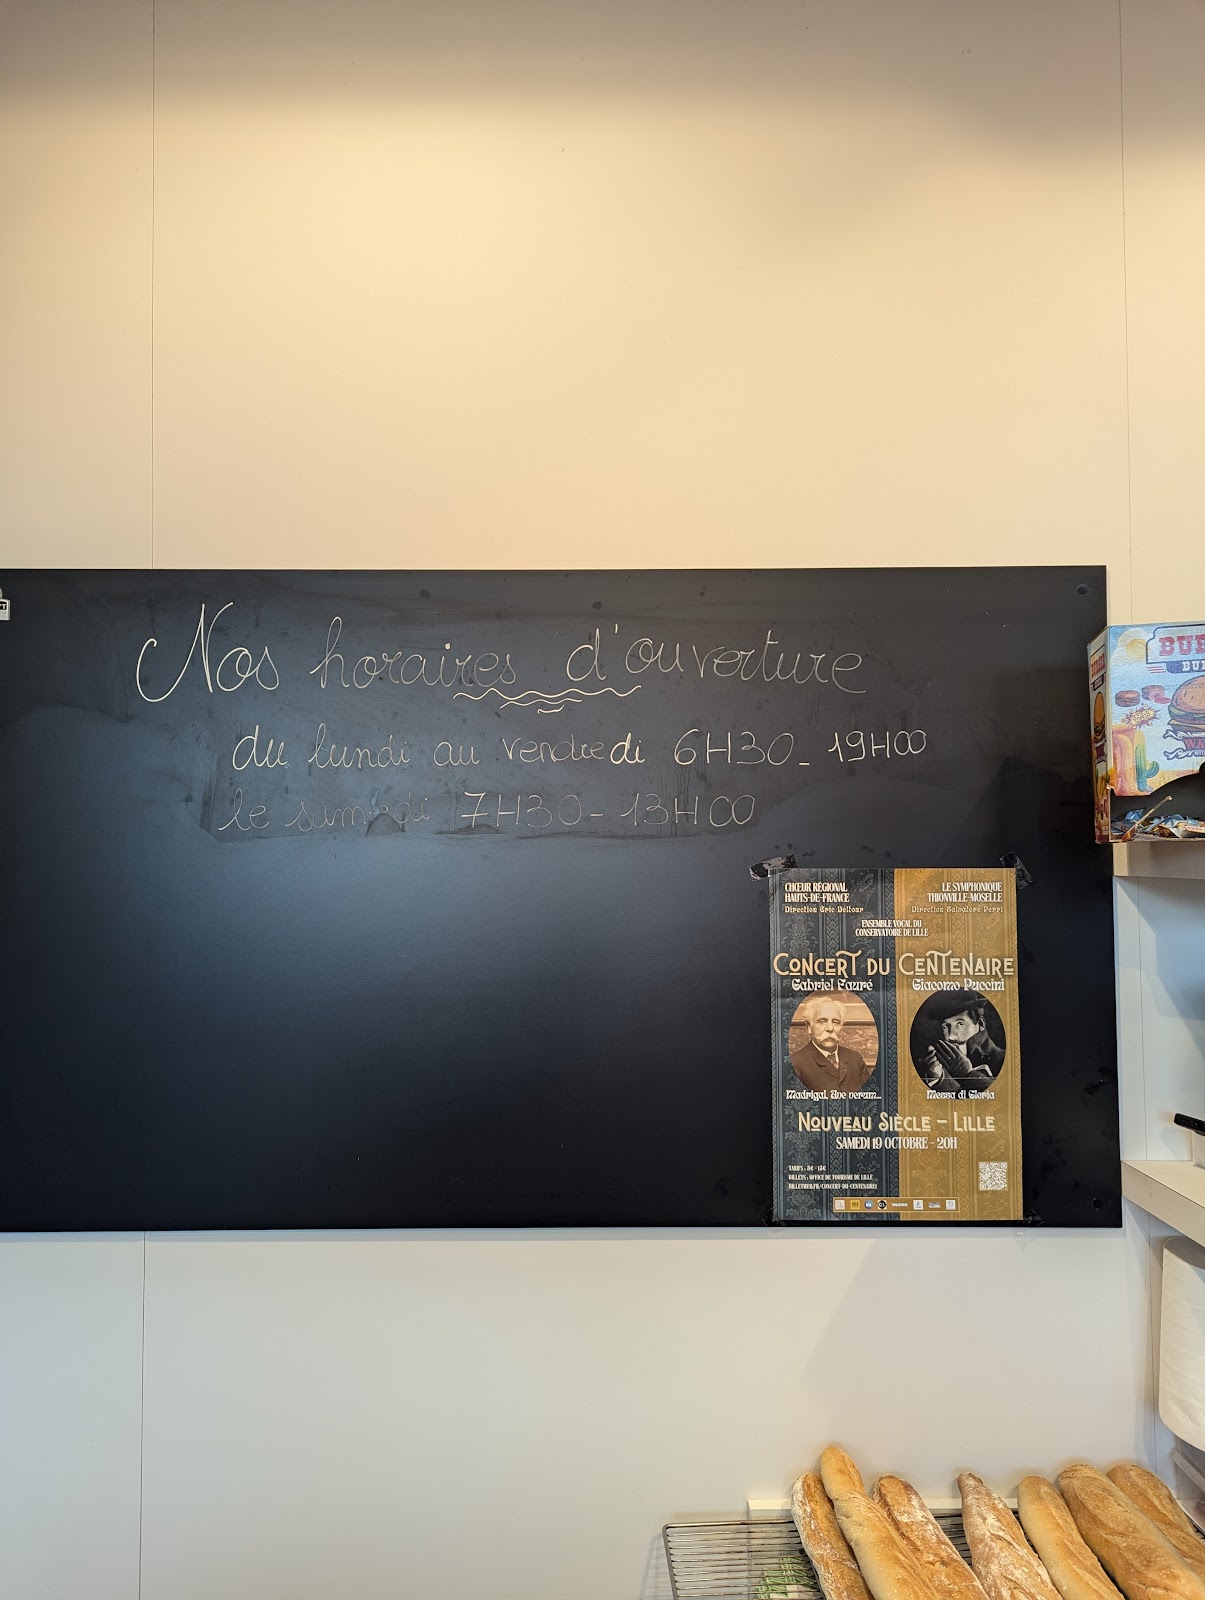 Nos horaires d'ouverture
du lundi au vendredi 6H30 - 19H00
le samedi 7H30 - 13H00
BUR
BU
WA
CHŒUR RÉGIONAL
HAUTS-DE-FRANCE
Direction Eric Deltour
LE SYMPHONIQUE
THIONVILLE-MOSELLE
Direction Salvatore Perri
ENSEMBLE VOCAL DU
CONSERVATOIRE DE LILLE
CONCERT DU CENTENAIRE
Gabriel Fauré
Giacomo Puccini
Madrigal, Ave verum...
Messa di Gloria
NOUVEAU SIÈCLE - LILLE
SAMEDI 19 OCTOBRE - 20H
TARIFS : 5€ - 15€
BILLETS : OFFICE DE TOURISME DE LILLE
BILLETWEB.FR/CONCERT-DU-CENTENAIRE1